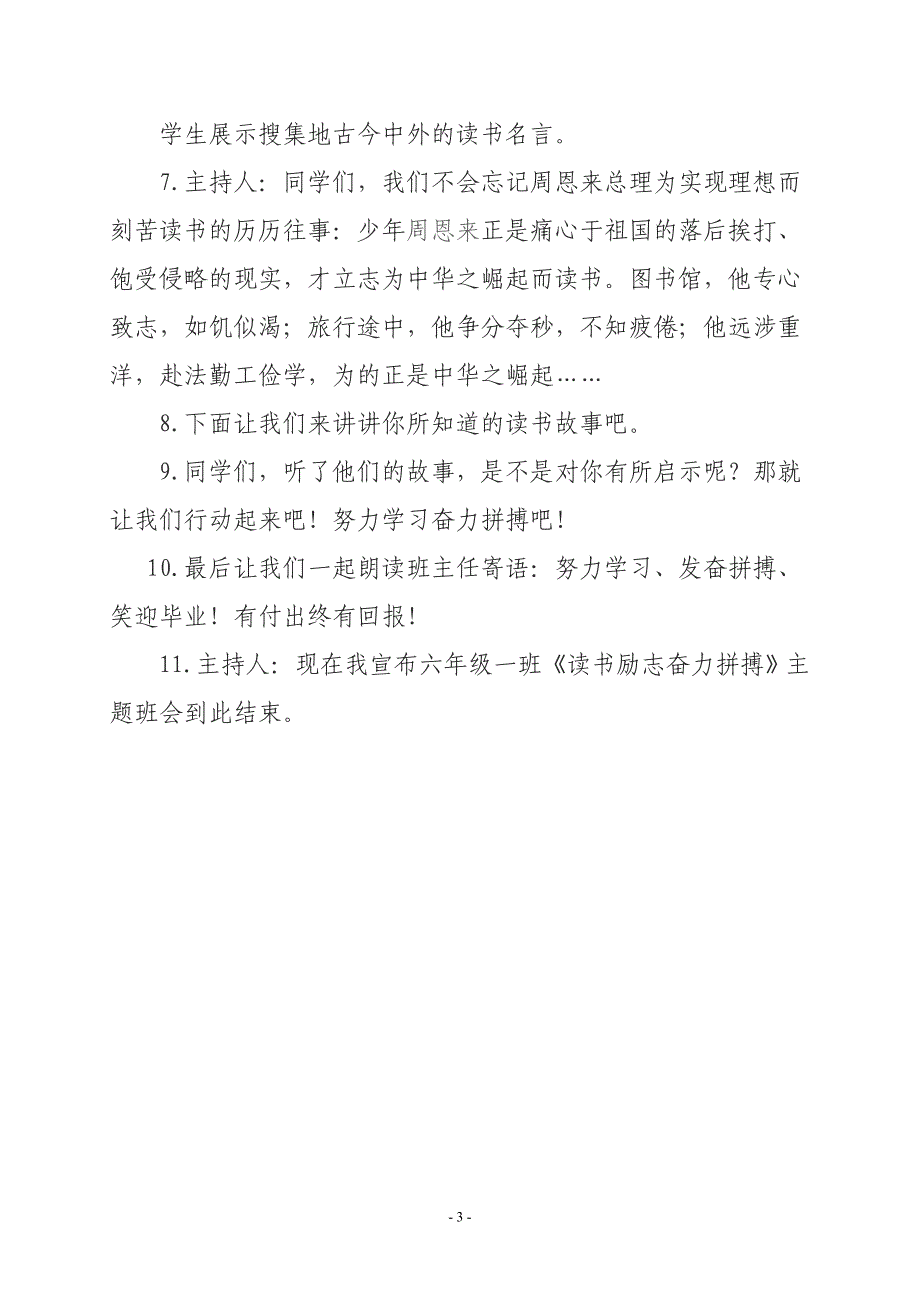 学生展示搜集地古今中外的读书名言。
7.主持人：同学们，我们不会忘记周恩来总理为实现理想而
刻苦读书的历历往事：少年周恩来正是痛心于祖国的落后挨打、
饱受侵略的现实，才立志为中华之崛起而读书。图书馆，他专心
致志，如饥似渴；旅行途中，他争分夺秒，不知疲倦；他远涉重
洋，赴法勤工俭学，为的正是中华之崛起……
8.下面让我们来讲讲你所知道的读书故事吧。
9.同学们，听了他们的故事，是不是对你有所启示呢？那就
让我们行动起来吧！努力学习奋力拼搏吧！
10.最后让我们一起朗读班主任寄语：努力学习、发奋拼搏、
笑迎毕业！有付出终有回报！
11.主持人：现在我宣布六年级一班《读书励志奋力拼搏》主
题班会到此结束。
- 3 -